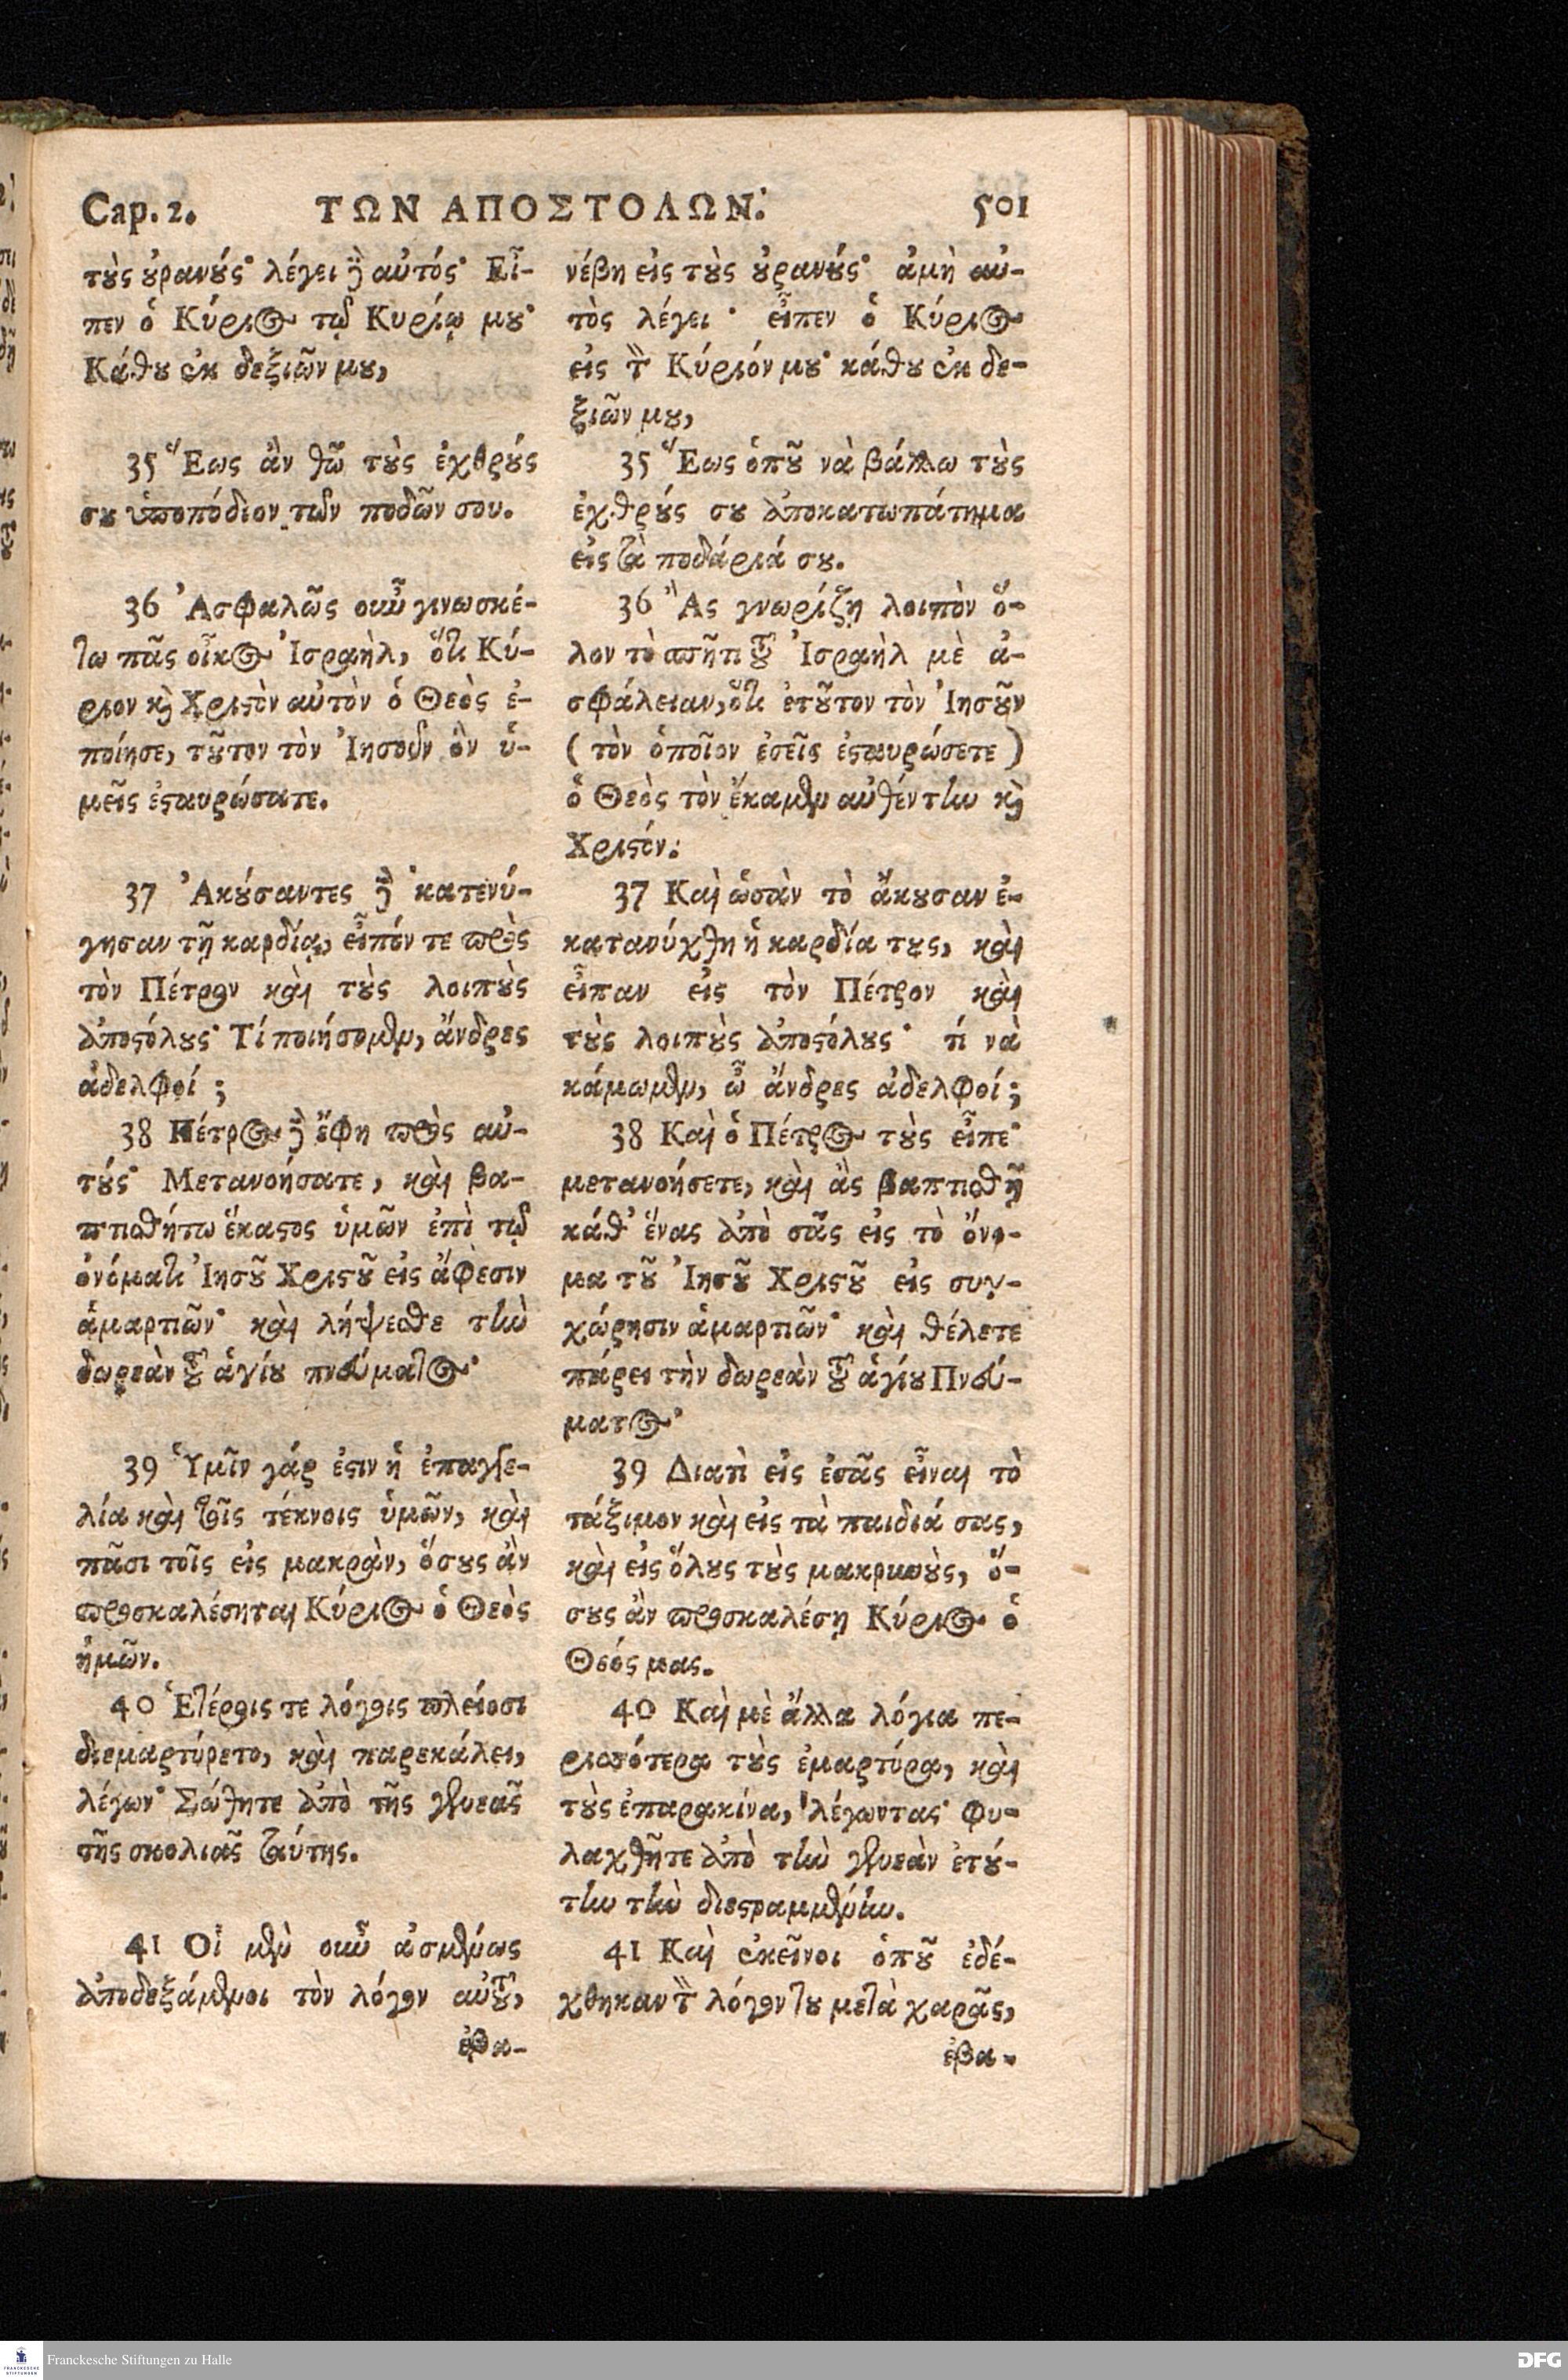 Cap. 2. ΤΩΝ ΑΠΟΣΤΟΛΩΝ. 501
τȣ̀ς ȣ̓ρανȣ́ς· λέγει δὲ αὐτός· Εἶ-
πεν ὁ Κύριος τῷ Κυρίῳ μȣ·
Κάθȣ ἐκ δεξιῶν μȣ,
35 Ἕως ἂν θῶ τȣ̀ς ἐχθρȣ́ς
σȣ ὑποπόδιον τῶν ποδῶν σου.
36 Ἀσφαλῶς οὖν γινωσκέ-
τω πᾶς οἶκος Ἰσραὴλ, ὅτι Κύ-
ριον κὶ Χριϛὸν αὐτὸν ὁ Θεὸς ἐ-
ποίησε, τȣ͂τον τὸν Ἰησοῦν ὃν ὑ-
μεῖς ἐϛαυρώσατε.
37 Ἀκȣ́σαντες δὲ κατενύ-
γησαν τῇ καρδίᾳ, εἶπόν τε πρὸς
τὸν Πέτρον καὶ τȣ̀ς λοιπȣ̀ς
ἀποϛόλȣς· Τί ποιήσομεν, ἄνδρες
ἀδελφοί;
38 Πέτρος δὲ ἔφη πρὸς αὐ-
τȣ́ς· Μετανοήσατε, καὶ βα-
πτισθήτω ἕκαϛος ὑμῶν ἐπὶ τῷ
ὀνόματι Ἰησȣ͂ Χριϛȣ͂ εἰς ἄφεσιν
ἁμαρτιῶν· καὶ λήψεσθε τὴν
δωρεὰν τȣ͂ ἁγίȣ πνεύματος·
39 Ὑμῖν γάρ ἐϛιν ἡ ἐπαγγε-
λία καὶ τοῖς τέκνοις ὑμῶν, καὶ
πᾶσι τοῖς εἰς μακρὰν, ὅσȣς ἂν
προσκαλέσηται Κύριος ὁ Θεὸς
ἡμῶν.
40 Ἑτέροις τε λόγοις πλείοσι
διεμαρτύρετο, καὶ παρεκάλει,
λέγων· Σώθητε ἀπὸ τῆς γενεᾶς
τῆς σκολιᾶς ταύτης.
41 Οἱ μὲν οὖν ἀσμένως
ἀποδεξάμενοι τὸν λόγον αὐτȣ͂,
ἐβα-
νέβη εἰς τȣ̀ς ȣ̓ρανȣ́ς· ἀμὴ αὐ-
τὸς λέγει· εἶπεν ὁ Κύριος
εἰς τὸν Κύριόν μȣ· κάθȣ ἐκ δε-
ξιῶν μȣ,
35 Ἕως ὁπȣ͂ νὰ βάλλω τȣ̀ς
ἐχθρȣ́ς σȣ ἀποκατωπάτημα
εἰς τὰ ποδάριά σȣ.
36 Ἂς γνωρίζῃ λοιπὸν ὅ-
λον τὸ σπῆτι τȣ͂ Ἰσραὴλ μὲ ἀ-
σφάλειαν, ὅτι ἐτȣ͂τον τὸν Ἰησȣ͂ν
(τὸν ὁποῖον ἐσεῖς ἐϛαυρώσετε)
ὁ Θεὸς τὸν ἔκαμεν αὐθέντην κὶ
Χριϛόν.
37 Καὶ ὡσὰν τὸ ἄκȣσαν ἐ-
κατανύχθη ἡ καρδία τȣς, καὶ
εἶπαν εἰς τὸν Πέτρον καὶ
τȣ̀ς λοιπȣ̀ς ἀποϛόλȣς· τί νὰ
κάμωμεν, ὦ ἄνδρες ἀδελφοί;
38 Καὶ ὁ Πέτρος τȣ̀ς εἶπε·
μετανοήσετε, καὶ ἂς βαπτισθῇ
κάθ' ἕνας ἀπὸ σᾶς εἰς τὸ ὄνο-
μα τȣ͂ Ἰησȣ͂ Χριϛȣ͂ εἰς συγ-
χώρησιν ἁμαρτιῶν· καὶ θέλετε
πάρει τὴν δωρεὰν τȣ͂ ἁγίȣ Πνεύ-
ματος·
39 Διατὶ εἰς ἐσᾶς εἶναι τὸ
τάξιμον καὶ εἰς τὰ παιδιά σας,
καὶ εἰς ὅλȣς τȣ̀ς μακρινȣ̀ς, ὅ-
σȣς ἂν προσκαλέσῃ Κύριος ὁ
Θεός μας.
40 Καὶ μὲ ἄλλα λόγια πε-
ρισσότερα τȣ̀ς ἐμαρτύρα, καὶ
τȣ̀ς ἐπαρακίνα, λέγωντας· φυ-
λαχθῆτε ἀπὸ τὴν γενεὰν ἐτȣ́-
την τὴν διεϛραμμένην.
41 Καὶ ἐκεῖνοι ὁπȣ͂ ἐδέ-
χθηκαν τὸν λόγον τȣ μετὰ χαρᾶς,
ἐβα-
Franckesche Stiftungen zu Halle
DFG